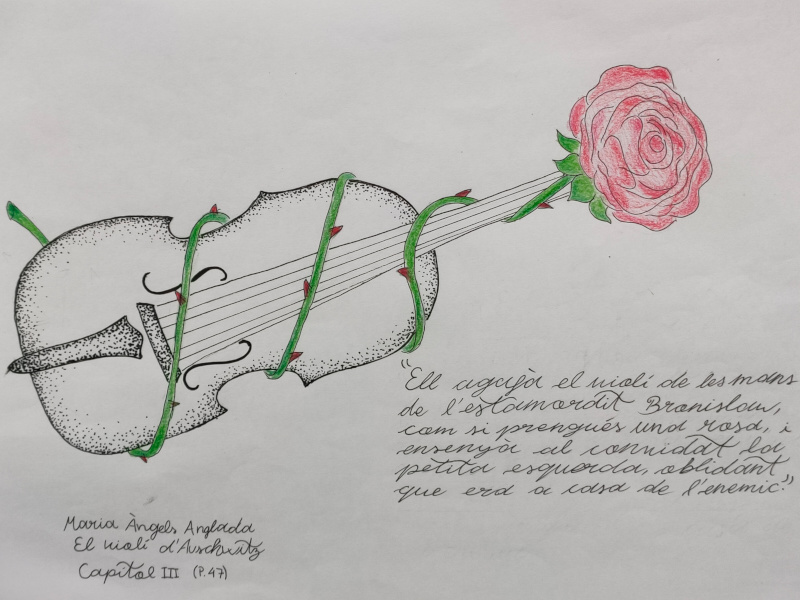 "Ell agafà el violí de les mans
de l'estamordit Bronislaw,
com si prengués una rosa, i
ensenyà al convidat la
petita esquerda, oblidant
que era a casa de l'enemic."
Maria Àngels Anglada
El violí d'Auschwitz
Capítol III (P.47)